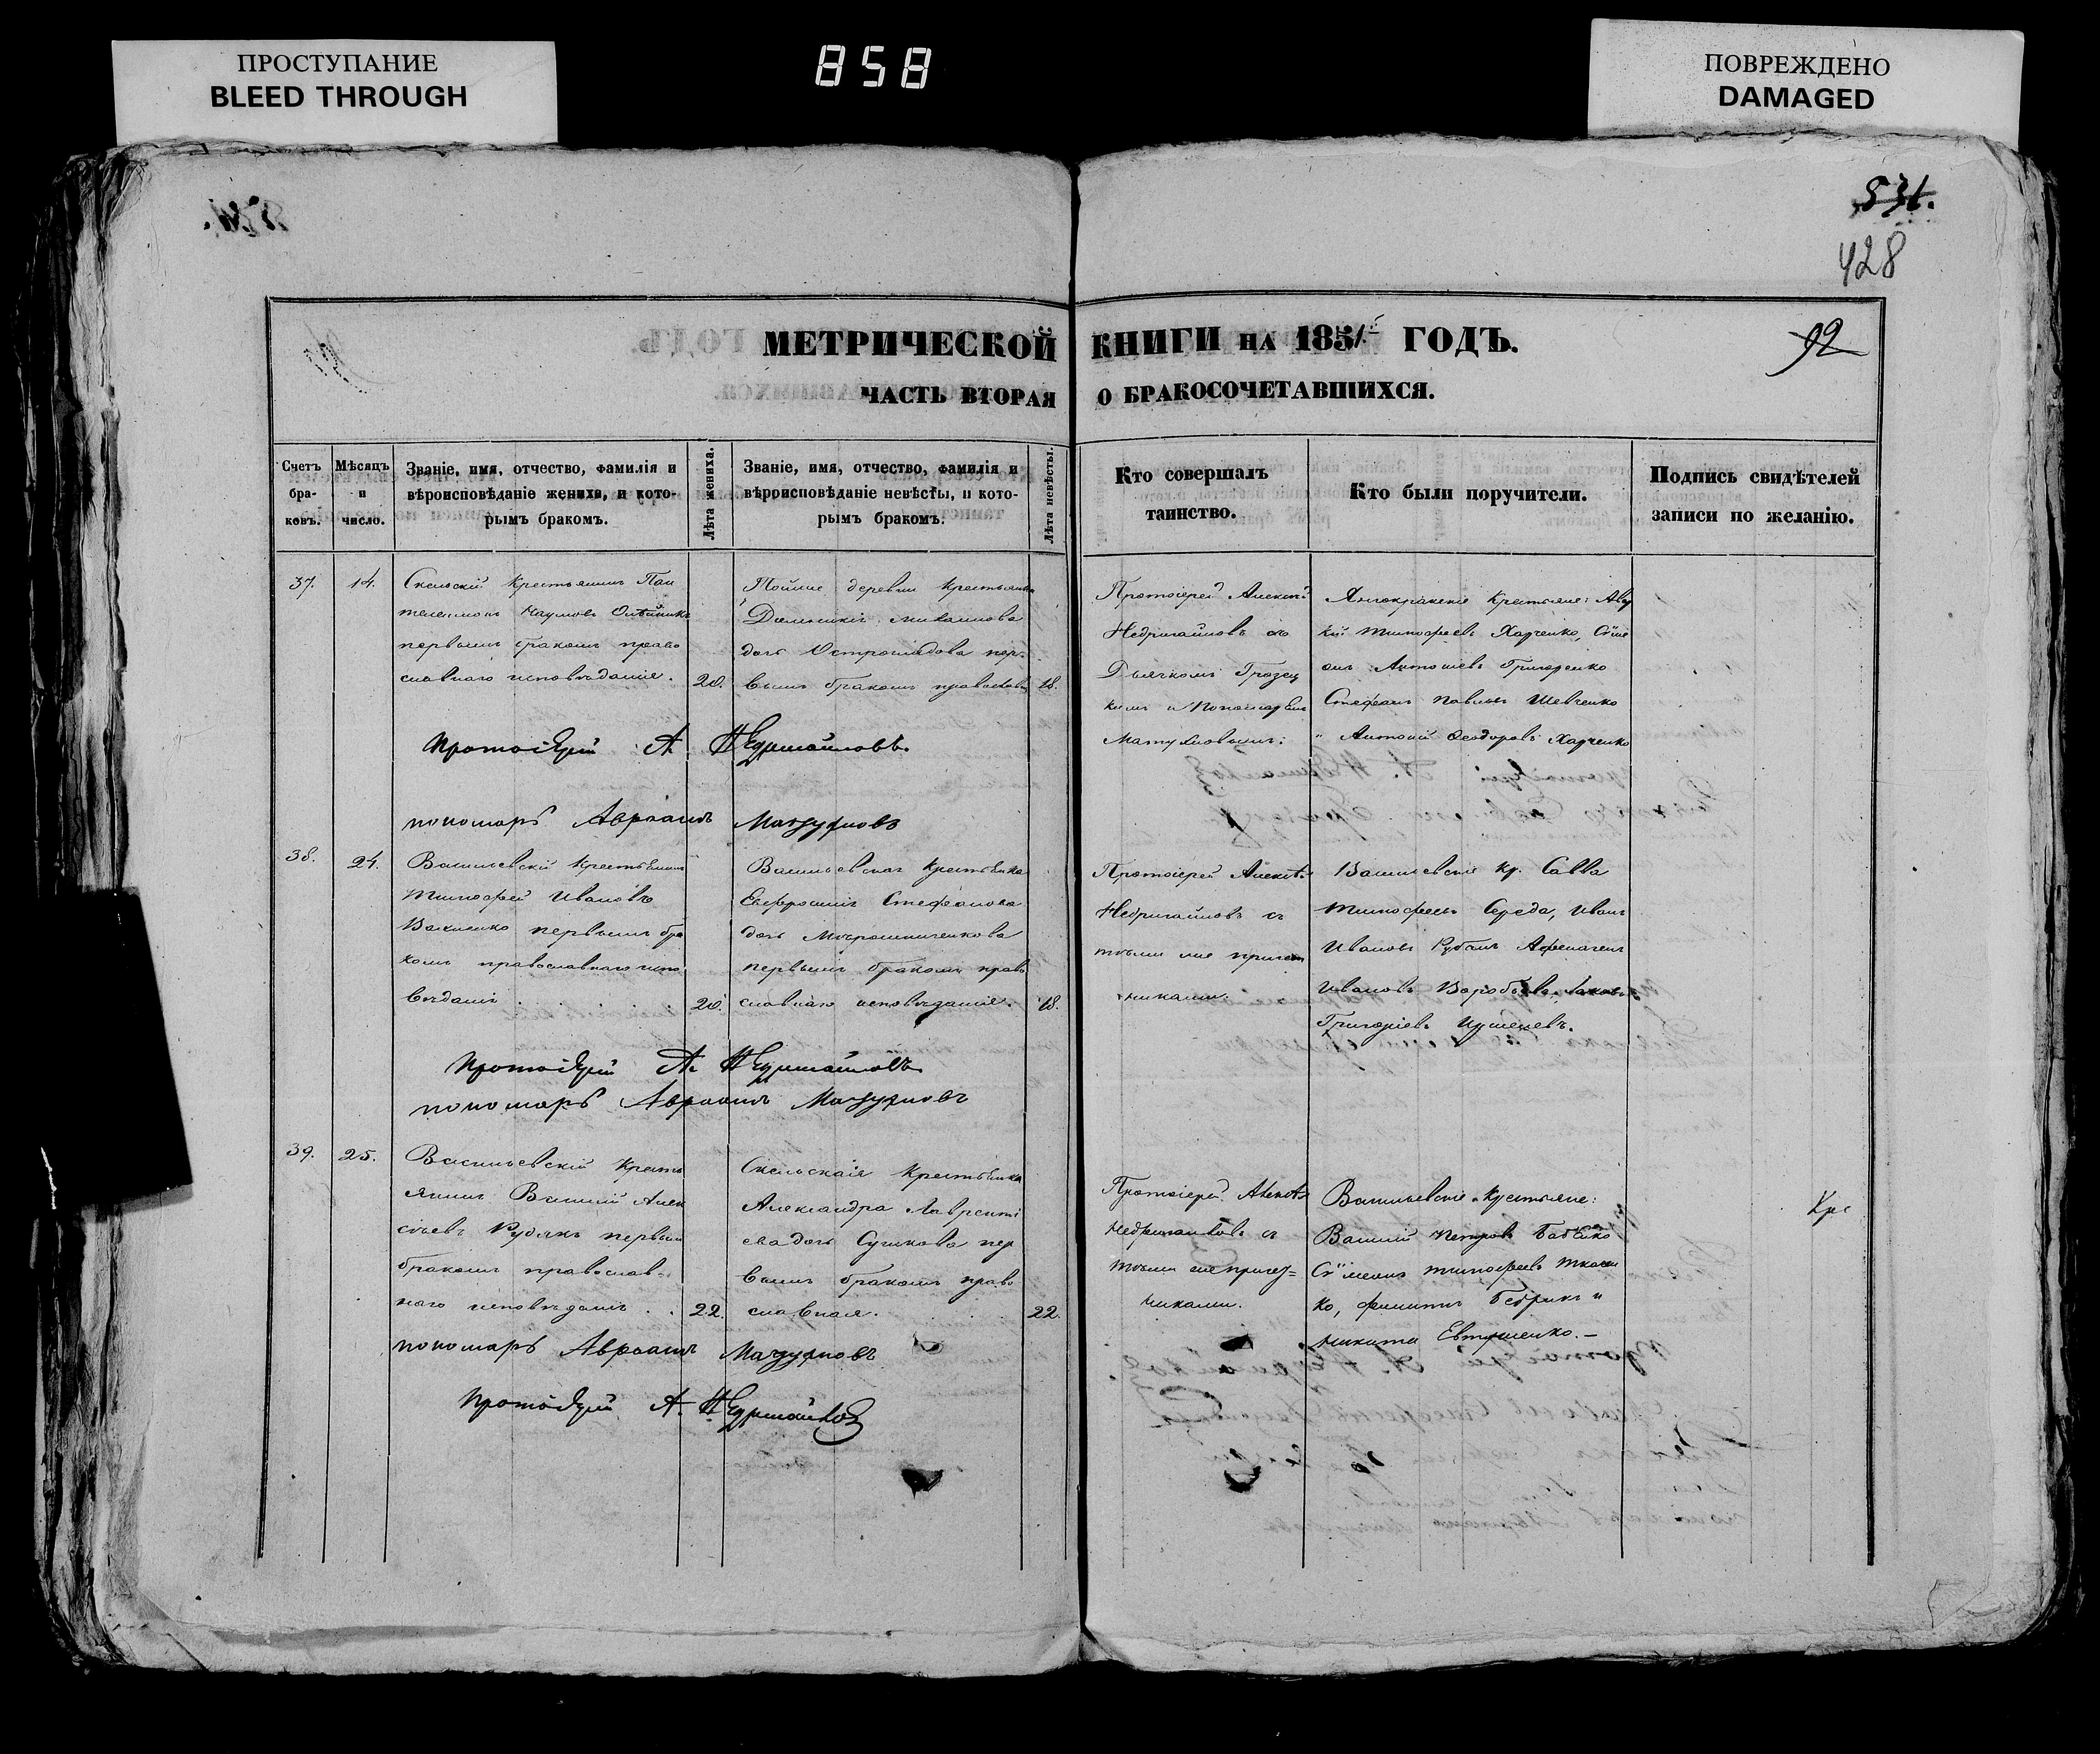 ПРОСТУПАНИЕ
BLEED THROUGH
858
ПОВРЕЖДЕНО
DAMAGED
428
92
МЕТРИЧЕСКОЙ КНИГИ НА 185 ГОДЪ.
ЧАСТЬ ВТОРАЯ О БРАКОСОЧЕТАВШИХСЯ.
Счетъ
бра-
ковъ.
Мѣсяцъ
и
число.
Званіе, имя, отчество, фамилія и
вѣроисповѣданіе жениха, и кото-
рымъ бракомъ.
Лѣта жениха.
Званіе, имя, отчество, фамилія и
вѣроисповѣданіе невѣсты, и кото-
рымъ бракомъ.
Лѣта невѣсты.
Кто совершалъ
таинство.
Кто были поручители.
Подпись свидѣтелей
записи по желанію.
37.
14.
Скельскій Крестьянинъ Пан
телеимонъ Наумовъ Олѣйникъ
первымъ бракомъ право
славнаго исповѣданія.
20.
деревни Крестьянка
Михаилова
дочь пер-
вымъ бракомъ
18.
Протоіерей
Недригайловъ со
Дьячкомъ
и Пономаремъ
Крестьяне:
Тимофеевъ Харченко,
Григоренко
Стефанъ Павловъ Шевченко
Антоній Феодоровъ Харченко
Протоіерей А. Недригайловъ.
пономарь Авраамъ
38.
24.
Васильевскій Крестьянинъ
Тимофей Ивановъ
первымъ бра
комъ православнаго испо
вѣданія
20.
Васильевская Крестьянка
Евфросинія Стефанова
дочь
первымъ бракомъ право
славнаго исповѣданія.
18.
Протоіерей
Недригайловъ съ
тѣми же причет
никами.
Васильевскіе кр. Савва
Тимофеевъ Середа, Иванъ
Ивановъ
Ивановъ Воробьевъ, Іаковъ
Григоріевъ
Протоіерей А. Недригайловъ
пономарь Авраамъ
39.
25.
Васильевскій Кресть
янинъ Василій Алек
сѣевъ Рудякъ первым
бракомъ православ-
наго исповѣданія
22.
Скельская Крестьянка
Александра Лавренті
ева дочь Сучкова пер
вымъ бракомъ право
славная.
22.
Протоіерей
Недригайловъ съ
тѣми же причет=
никами.
Васильевскіе Крестьяне:
Василій Петровъ Бабенко
Сѵмеонъ Тимофеевъ Ткачен
ко, Филиппъ Бедрикъ и
Никита Евтушенко.—
пономарь Авраамъ
Протоіерей А. Недригайловъ